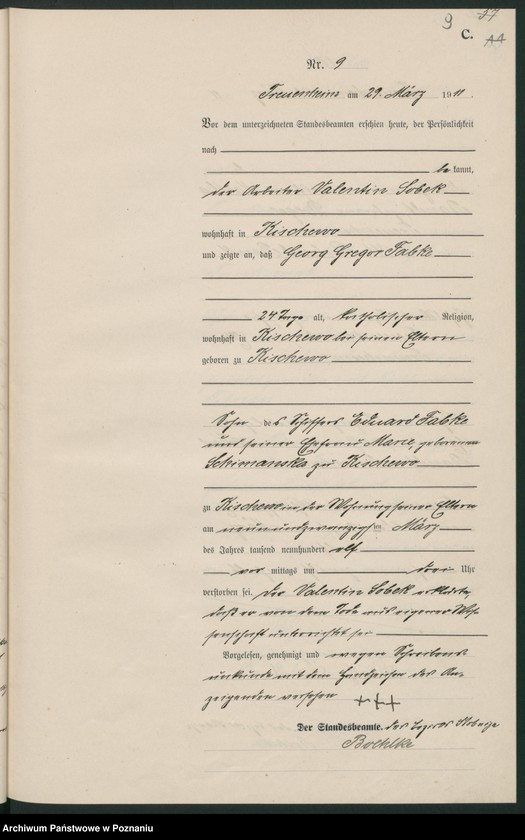 9 37
C. 44
Nr. 9
Treuenheim am 29. März 1911.
Vor dem unterzeichneten Standesbeamten erschien heute, der Persönlichkeit
nach
be kannt,
der Arbeiter Valentin Sobek
wohnhaft in Kischewo
und zeigte an, daß Georg Gregor Fabke
24 Tage alt, katholischer Religion,
wohnhaft in Kischewo bei seinen Eltern
geboren zu Kischewo
Sohn des Schiffers Eduard Fabke
und seiner Ehefrau Marie, geborenen
Schimanska zu Kischewo
zu Kischewo in der Wohnung seiner Eltern
am neunundzwanzigsten März
des Jahres tausend neunhundert elf
vor mittags um drei Uhr
verstorben sei. Der Valentin Sobek erklärte,
daß er von dem Tode aus eigener Wis-
senschaft unterrichtet sei
Vorgelesen, genehmigt und wegen Schreibens-
unkunde mit dem Handzeichen des An-
zeigenden versehen +++
Der Standesbeamte. des Bezirks
Boehlke
Archiwum Państwowe w Poznaniu